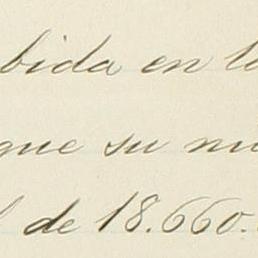 bida en la
que su mu
l de 18.660.